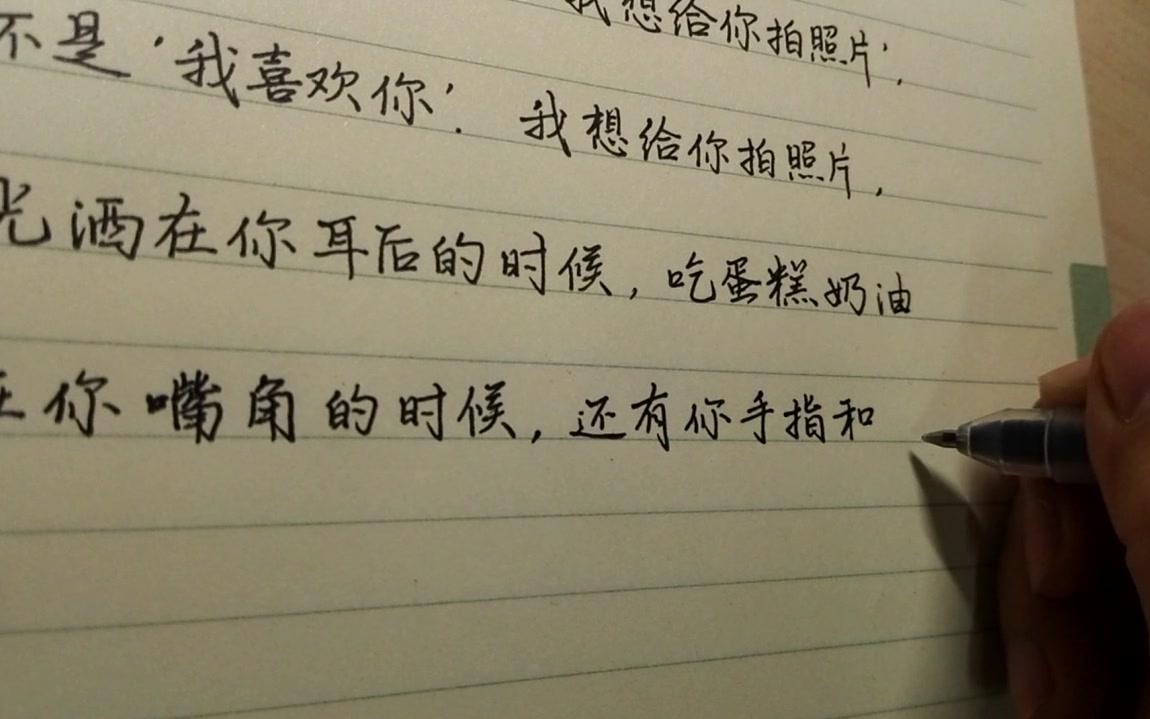 我想给你拍照片',
不是'我喜欢你'. 我想给你拍照片,
光洒在你耳后的时候,吃蛋糕奶油
在你嘴角的时候,还有你手指和